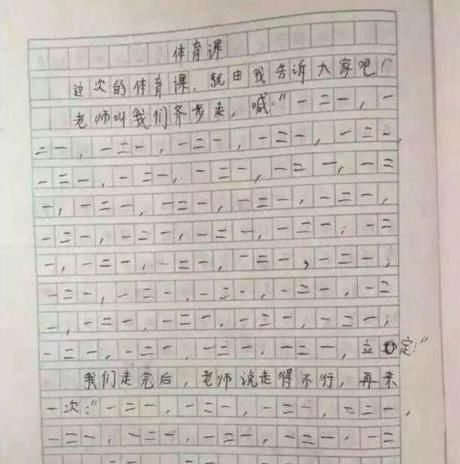 体育课
这次的体育课，就由我告诉大家吧！
老师叫我们齐步走，喊：“一二一，一
二一，一二一，一二一，一二一，一二一，
一二一，一二一，一二一，一二一，一二
一，一二一，一二一，一二一，一二一，
一二一，一二一，一二一，一二一，一二
一，一二一，一二一，一二一，一二一，
一二一，一二一，一二一，一二一，一二
一，一二一，一二一，一二一，一二一，
一二一，一二一，一二一，一二一，立定！”
我们走完后，老师说走得不行，再来
一次：“一二一，一二一，一二一，一二一，
一二一，一二一，一二一，一二一，一二